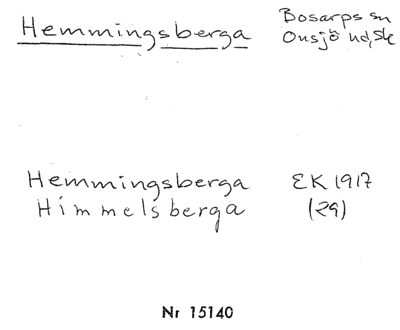 Hemmingsberga Bosarps sn
Onsjö hd, Sk
Hemmingsberga EK 1917
Himmelsberga (29)
Nr 15140